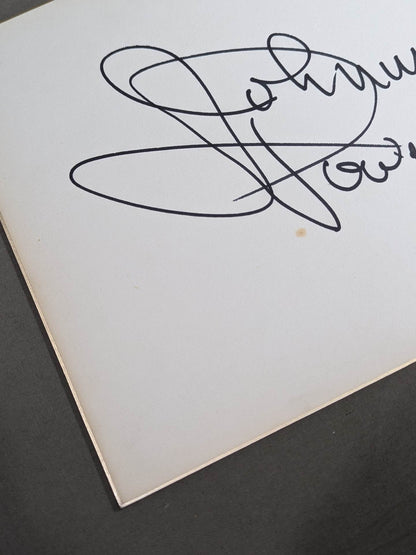 Johnn
Pow